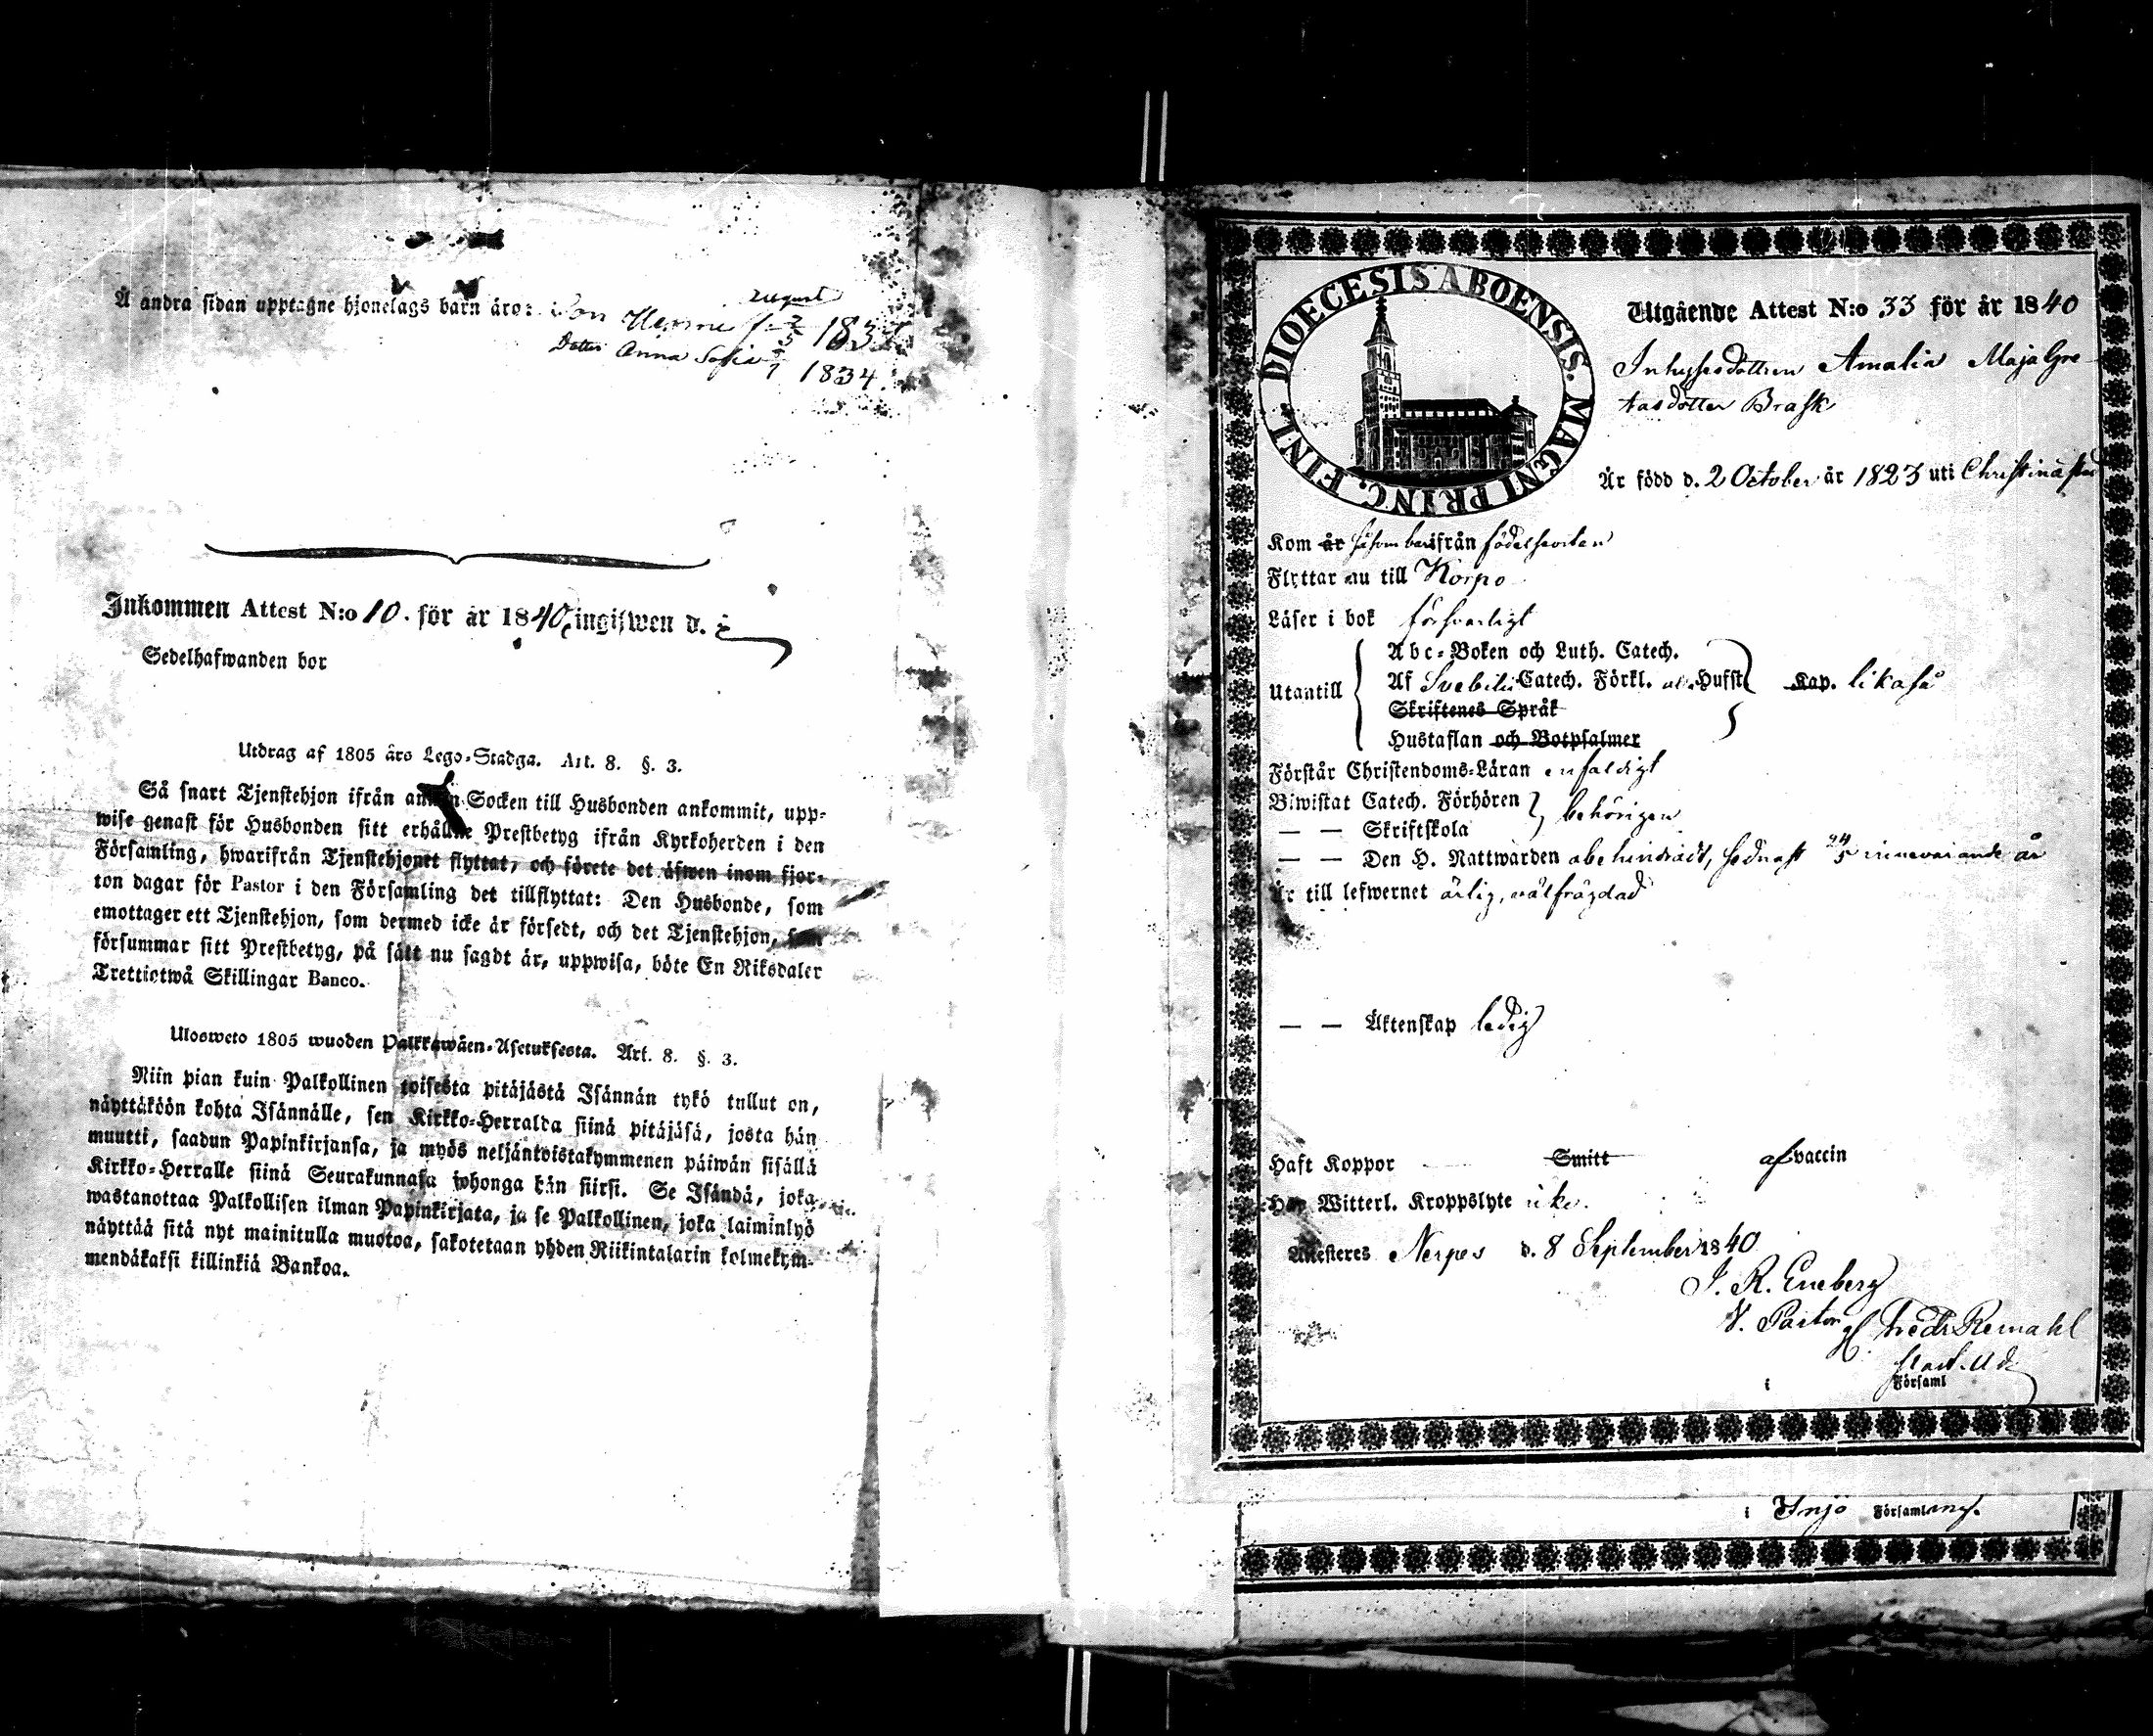 Å andra sidan upptagne hjonelags barn äro: Son
august
1837
Dotter Anna Sofia 1834.
Inkommen Attest N:o 10. för år 1840, ingifwen d.
Sedelhafwanden bor
Utdrag af 1805 års Lego-Stadga. Art. 8. §. 3.
Så snart Tjenstehjon ifrån annan Socken till Husbonden ankommit, upp-
wise genast för Husbonden sitt erhållne Prestbetyg ifrån Kyrkoherden i den
Församling, hwarifrån Tjenstehjonet flyttat, och förete det äfwen inom fjor-
ton dagar för Pastor i den Församling det tillflyttat: Den Husbonde, som
emottager ett Tjenstehjon, som dermed icke är försedt, och det Tjenstehjon, som
försummar sitt Prestbetyg, på sätt nu sagdt är, uppwisa, böte En Riksdaler
Trettiotwå Skillingar Banco.
Ulosweto 1805 wuoden Palkkawäen-Asetuksesta. Art. 8. §. 3.
Niin pian kuin Palkollinen toisesta pitäjästä Isännän tykö tullut on,
näyttäköön kohta Isännälle, sen Kirkko-Herralda siinä pitäjäsä, josta hän
muutti, saadun Papinkirjansa, ja myös neljäntoistakymmenen päiwän sisällä
Kirkko-Herralle siinä Seurakunnasa johonga hän siirsi. Se Isändä, joka
wastanottaa Palkollisen ilman Papinkirjata, ja se Palkollinen, joka laiminlyö
näyttää sitä nyt mainitulla muotoa, sakotetaan yhden Riikintalarin kolmekym-
mendäkaksi killinkiä Bankoa.
DIOECESIS ABOENSIS. MAGNI PRINC. FINL.
Utgående Attest N:o 33 för år 1840
Inhysesdottren Amalia Maja Gre-
tasdotter Brask
Är född d. 2 October år 1823 uti Christinästad
Kom år såsom barn ifrån födelseorten
Flyttar nu till Korpo
Läser i bok försvarligt
Abc-Boken och Luth. Catech.
Utantill Af Svebilii Catech. Förkl. alla Hufst Kap. likaså
Skriftenes Språk
Hustaflan och Botpsalmer
Förstår Christendoms-Läran enfaldigt
Biwistat Catech. Förhören behörigen
— — Skriftskola
— — Den H. Nattwarden obehindradt, sednast 24/5 innevarande år
Är till lefwernet ärlig, välfrägdad
— — Äktenskap ledig
Haft Koppor Smitt af vaccin
Har Witterl. Kroppslyte icke.
Attesteres Nerpes d. 8 September 1840
J. R. Eneberg
V. Pastor
Fredr Remahl
i Församl
i Ingo Församling.